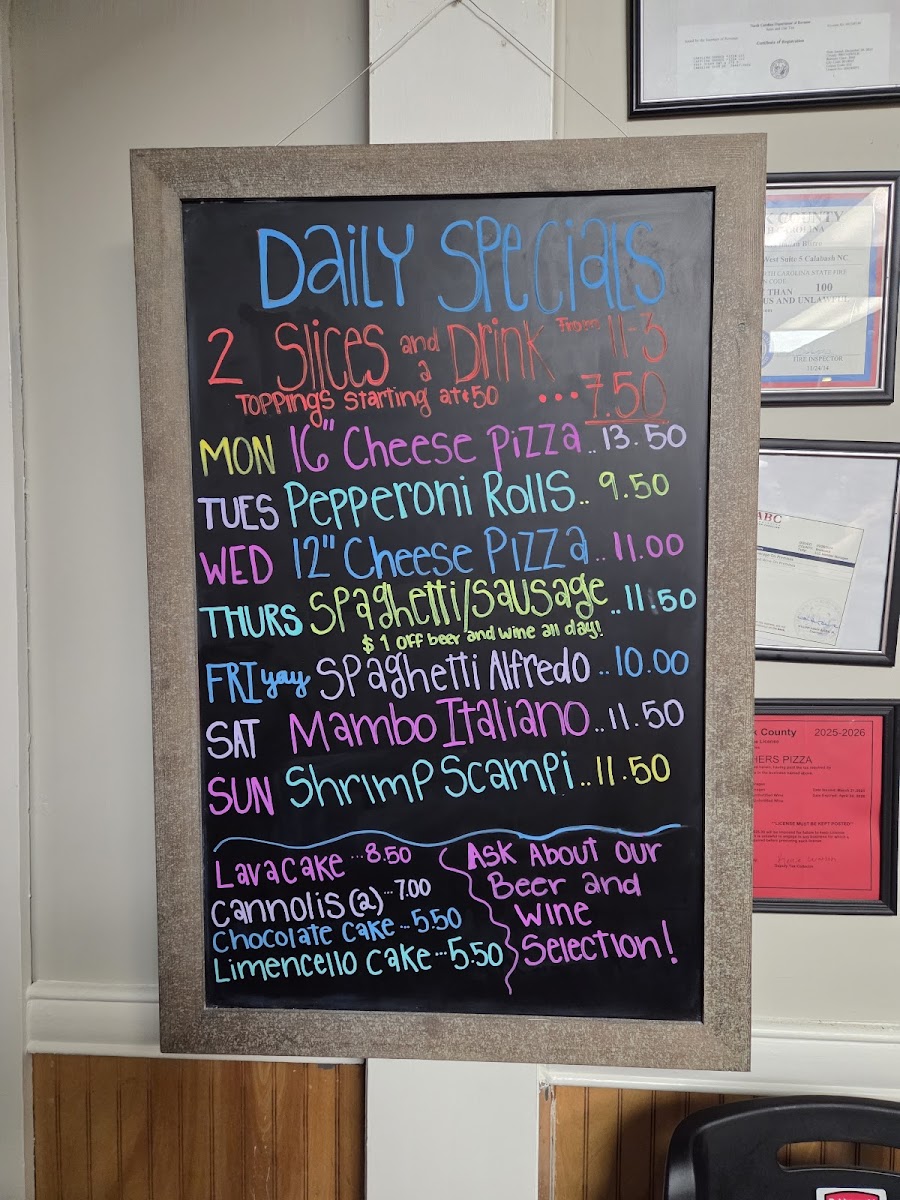 Daily Specials
2 Slices and a Drink From 11-3
Toppings starting at $.50 ...7.50
MON 16" Cheese Pizza..13.50
TUES Pepperoni Rolls..9.50
WED 12" Cheese Pizza..11.00
THURS Spaghetti/Sausage..11.50
$1 off beer and wine all day!
FRIyay Spaghetti Alfredo..10.00
SAT Mambo Italiano..11.50
SUN Shrimp Scampi..11.50
Lava Cake...8.50
Cannolis (2)...7.00
Chocolate Cake...5.50
Limencello Cake...5.50
Ask About our
Beer and
Wine
Selection!
Certificate of Registration
K COUNTY
West Suite 5 Calabash NC
TH CAROLINA STATE FIRE
THAN 100
US AND UNLAWFUL
FIRE INSPECTOR
ABC
k County 2025-2026
HERS PIZZA
**LICENSE MUST BE KEPT POSTED**